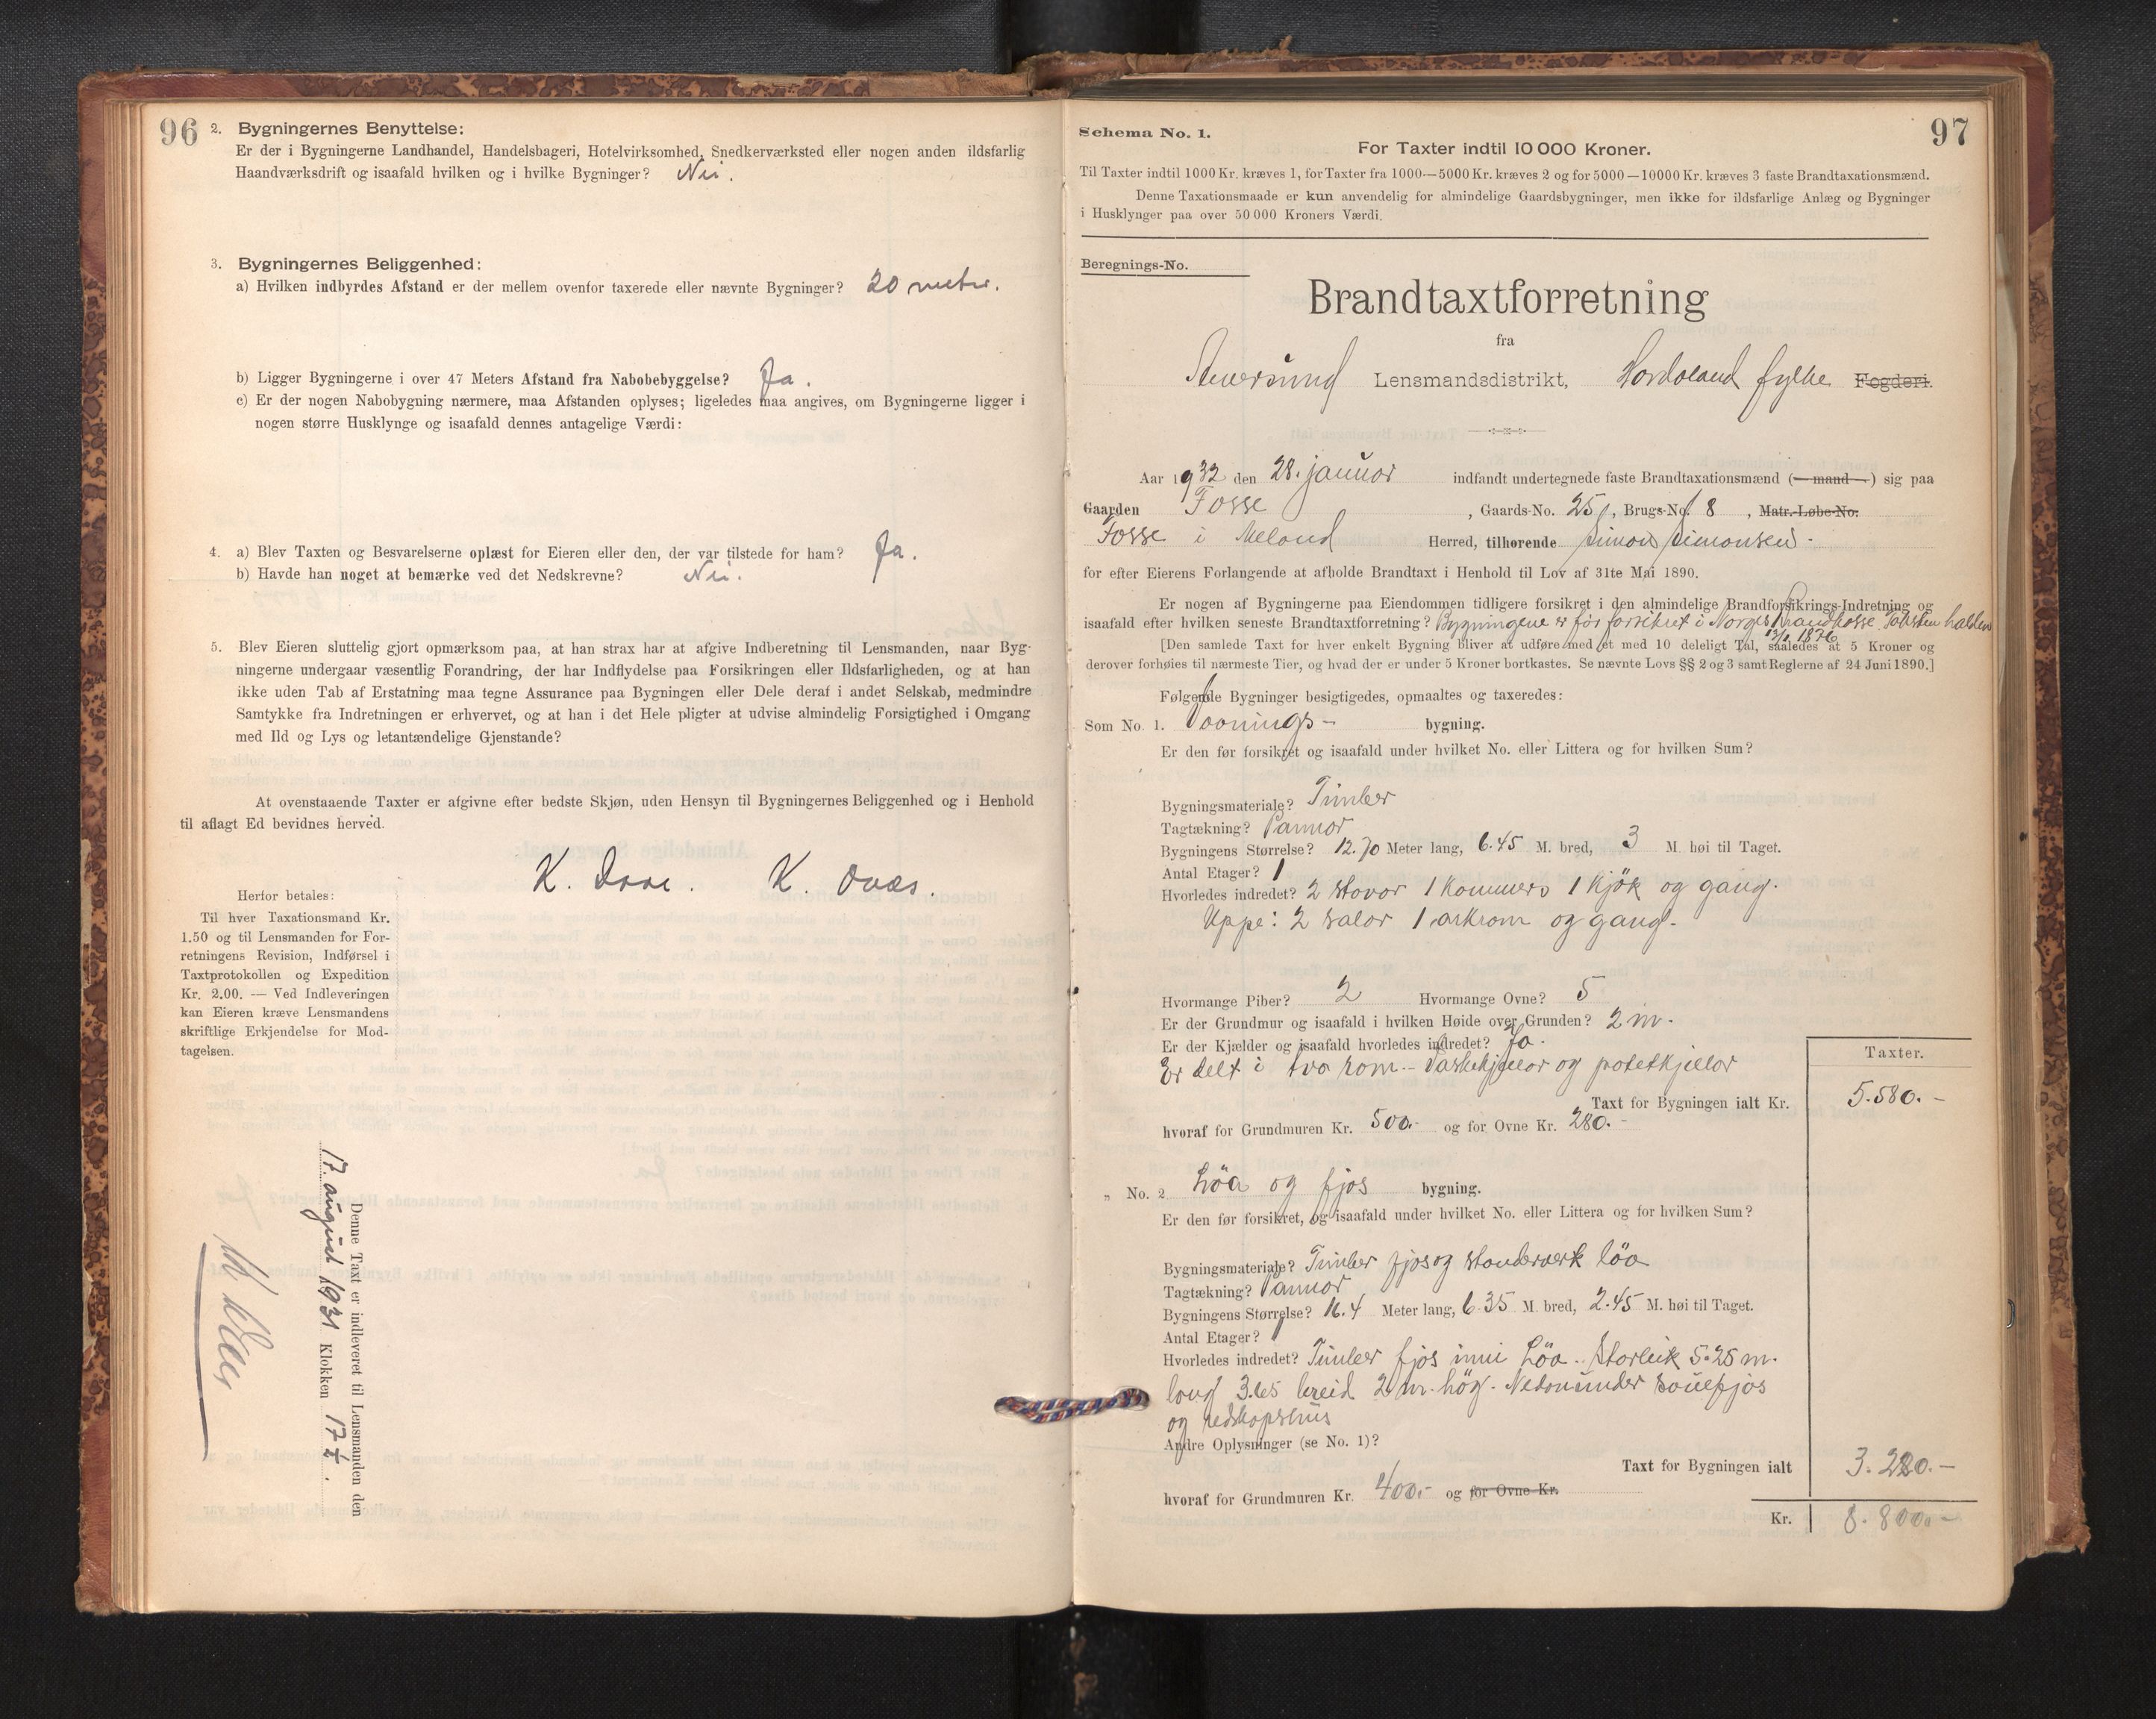 96
2. Bygningernes Benyttelse:
Er der i Bygningerne Landhandel, Handelsbageri, Hotelvirksomhed, Snedkerværksted eller nogen anden ildsfarlig
Haandværksdrift og isaafald hvilken og i hvilke Bygninger? Nei.
3. Bygningernes Beliggenhed:
a) Hvilken indbyrdes Afstand er der mellem ovenfor taxerede eller nævnte Bygninger? 20 meter.
b) Ligger Bygningerne i over 47 Meters Afstand fra Nabobebyggelse? Ja.
c) Er der nogen Nabobygning nærmere, maa Afstanden oplyses; ligeledes maa angives, om Bygningerne ligger i
nogen større Husklynge og isaafald dennes antagelige Værdi:
4. a) Blev Taxten og Besvarelserne oplæst for Eieren eller den, der var tilstede for ham? Ja.
b) Havde han noget at bemærke ved det Nedskrevne? Nei.
5. Blev Eieren sluttelig gjort opmærksom paa, at han strax har at afgive Indberetning til Lensmanden, naar Byg-
ningerne undergaar væsentlig Forandring, der har Indflydelse paa Forsikringen eller Ildsfarligheden, og at han
ikke uden Tab af Erstatning maa tegne Assurance paa Bygningen eller Dele deraf i andet Selskab, medmindre
Samtykke fra Indretningen er erhvervet, og at han i det Hele pligter at udvise almindelig Forsigtighed i Omgang
med Ild og Lys og letantændelige Gjenstande?
At ovenstaaende Taxter er afgivne efter bedste Skjøn, uden Hensyn til Bygningernes Beliggenhed og i Henhold
til aflagt Ed bevidnes herved.
K. K.
Herfor betales:
Til hver Taxationsmand Kr.
1.50 og til Lensmanden for For-
retningens Revision, Indførsel i
Taxtprotokollen og Expedition
Kr. 2.00. — Ved Indleveringen
kan Eieren kræve Lensmandens
skriftlige Erkjendelse for Mod-
tagelsen.
Denne Taxt er indleveret til Lensmanden den
17. august 1931 Klokken 17½.
97
Schema No. 1.
For Taxter indtil 10 000 Kroner.
Til Taxter indtil 1000 Kr. kræves 1, for Taxter fra 1000—5000 Kr. kræves 2 og for 5000—10000 Kr. kræves 3 faste Brandtaxationsmænd.
Denne Taxationsmaade er kun anvendelig for almindelige Gaardsbygninger, men ikke for ildsfarlige Anlæg og Bygninger
i Husklynger paa over 50 000 Kroners Værdi.
Beregnings-No.
Brandtaxtforretning
fra
Lensmandsdistrikt, Hordaland fylke Fogderi.
Aar 1932 den 28. januar indfandt undertegnede faste Brandtaxationsmænd (— mand —) sig paa
Gaarden Fosse, Gaards-No. 25, Brugs-No. 8, Matr.-Løbe-No.
Fosse i Meland Herred, tilhørende Simon Simonsen.
for efter Eierens Forlangende at afholde Brandtaxt i Henhold til Lov af 31te Mai 1890.
Er nogen af Bygningerne paa Eiendommen tidligere forsikret i den almindelige Brandforsikrings-Indretning og
isaafald efter hvilken seneste Brandtaxtforretning? Bygningene er før forsikret i Norges Brandkasse Taksten halden
[Den samlede Taxt for hver enkelt Bygning bliver at udføre med et med 10 deleligt Tal, saaledes at 5 Kroner og
derover forhøies til nærmeste Tier, og hvad der er under 5 Kroner bortkastes. Se nævnte Lovs §§ 2 og 3 samt Reglerne af 24 Juni 1890.]
Følgende Bygninger besigtigedes, opmaaltes og taxeredes:
Som No. 1. Vaanings- bygning.
Er den før forsikret og isaafald under hvilket No. eller Littera og for hvilken Sum?
Bygningsmateriale? Timber
Tagtækning? Pannor
Bygningens Størrelse? 12.70 Meter lang, 6.45 M. bred, 3 M. høi til Taget.
Antal Etager? 1
Hvorledes indredet? 2 stovor 1 kammers 1 kjøk og gang.
Uppe: 2 salar 1 arkrom og gang.
Hvormange Piber? 2 Hvormange Ovne? 5
Er der Grundmur og isaafald i hvilken Høide over Grunden? 2 m.
Er der Kjælder og isaafald hvorledes indredet? Ja.
Er delt i tvo rom.- Vaskekjellar og potetkjellar
Taxter.
Taxt for Bygningen ialt Kr. 5.580.-
hvoraf for Grundmuren Kr. 500.- og for Ovne Kr. 280.-
„ No. 2 Löa og fjos bygning.
Er den før forsikret, og isaafald under hvilket No. eller Littera og for hvilken Sum?
Bygningsmateriale? Timber fjos og standerverk löa
Tagtækning? Pannor
Bygningens Størrelse? 16.4 Meter lang, 6.35 M. bred, 2.45 M. høi til Taget.
Antal Etager? 1
Hvorledes indredet? Timber fjos inni Löa. Storleik 5.25 m.
lang 3.65 breid 2 m. hög. Nedanunder sauefjos
og redskapshus
Andre Oplysninger (se No. 1)?
Taxt for Bygningen ialt 3.220.-
hvoraf for Grundmuren Kr. 400.- og for Ovne Kr.
Kr. 8.800.-